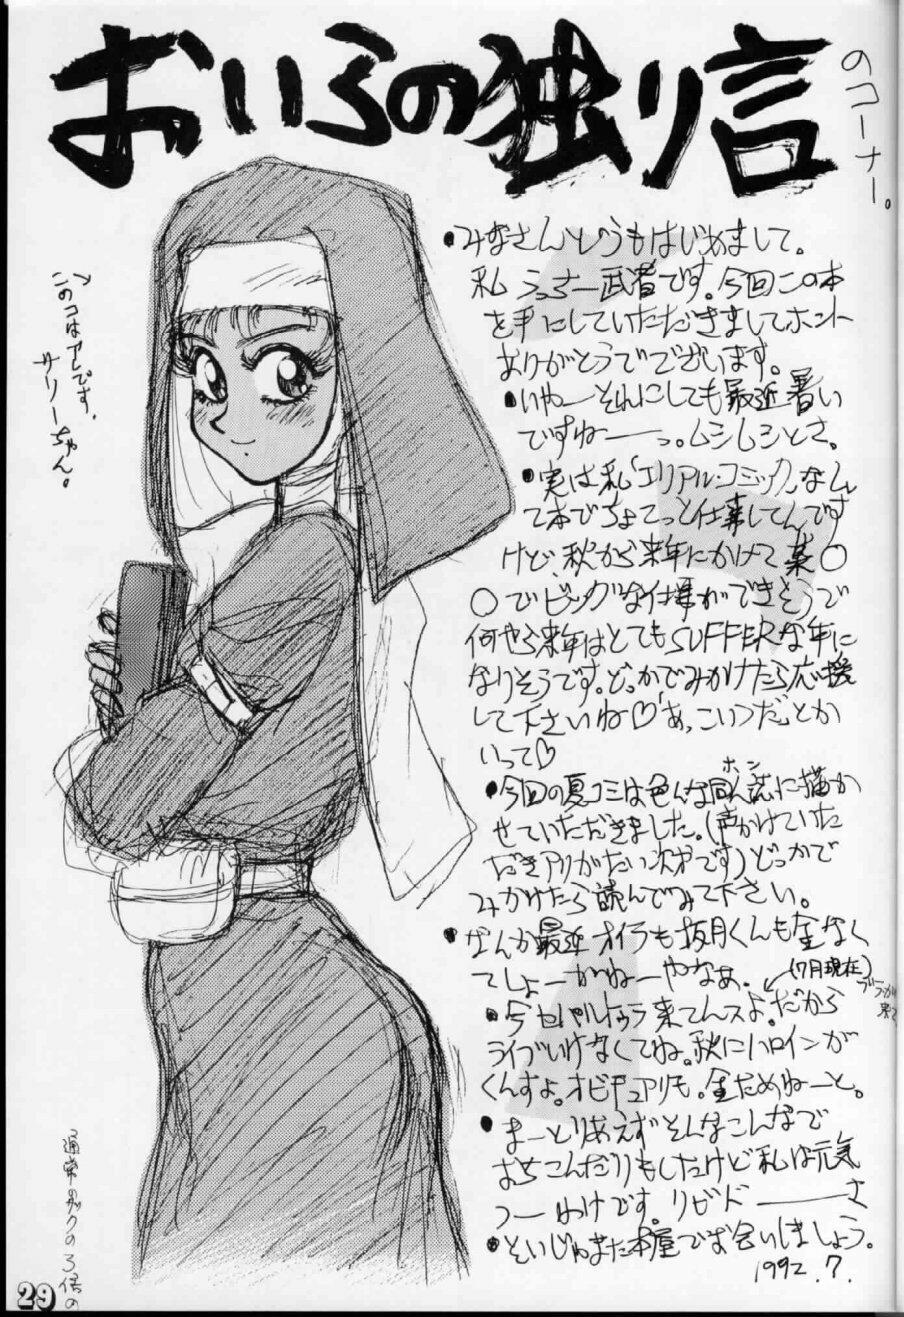 おいらの独り言
のコーナー。
このコはアレです、
サリーちゃん。
・みなさんどうもはじめまして。
私 うっちー武者です。今回この本
を手にしていただきましてホント
ありがとうでございます。
・いやーそれにしても最近暑い
ですねーーっ。ムシムシとさ。
・実は私「エリアルコミック」なん
て本でちょこっと仕事してんです
けど、秋から来年にかけて某〇
〇でビッグな仕事ができそうで
何やら来年はとてもSUFFERな年に
なりそうです。どっかでみかけたら応援
して下さいね♡「あっこいつだ」とか
いって♡
・今回の夏コミは色んな同人誌に描か
ホン
せていただきました。(声かけていた
だきアリがたい次才です)どっかで
みかけたら読んでみて下さい。
・なんか最近オイラも坂月くんも金なく
てしょーがねーやなぁ.
(7月現在)
・今セパルトゥラ来てんスよ。だから
ライブいけなくてね。秋にハロインが
くんすよ。オビチュアリも。金ためねーと。
・まーとりあえずそんなこんなで
おちこんだりもしたけど私は元気
っーわけです。リビドーーーさ
・そいじゃまた本屋でお会いしましょう。
1992.7.
通常のザクの3倍の
29